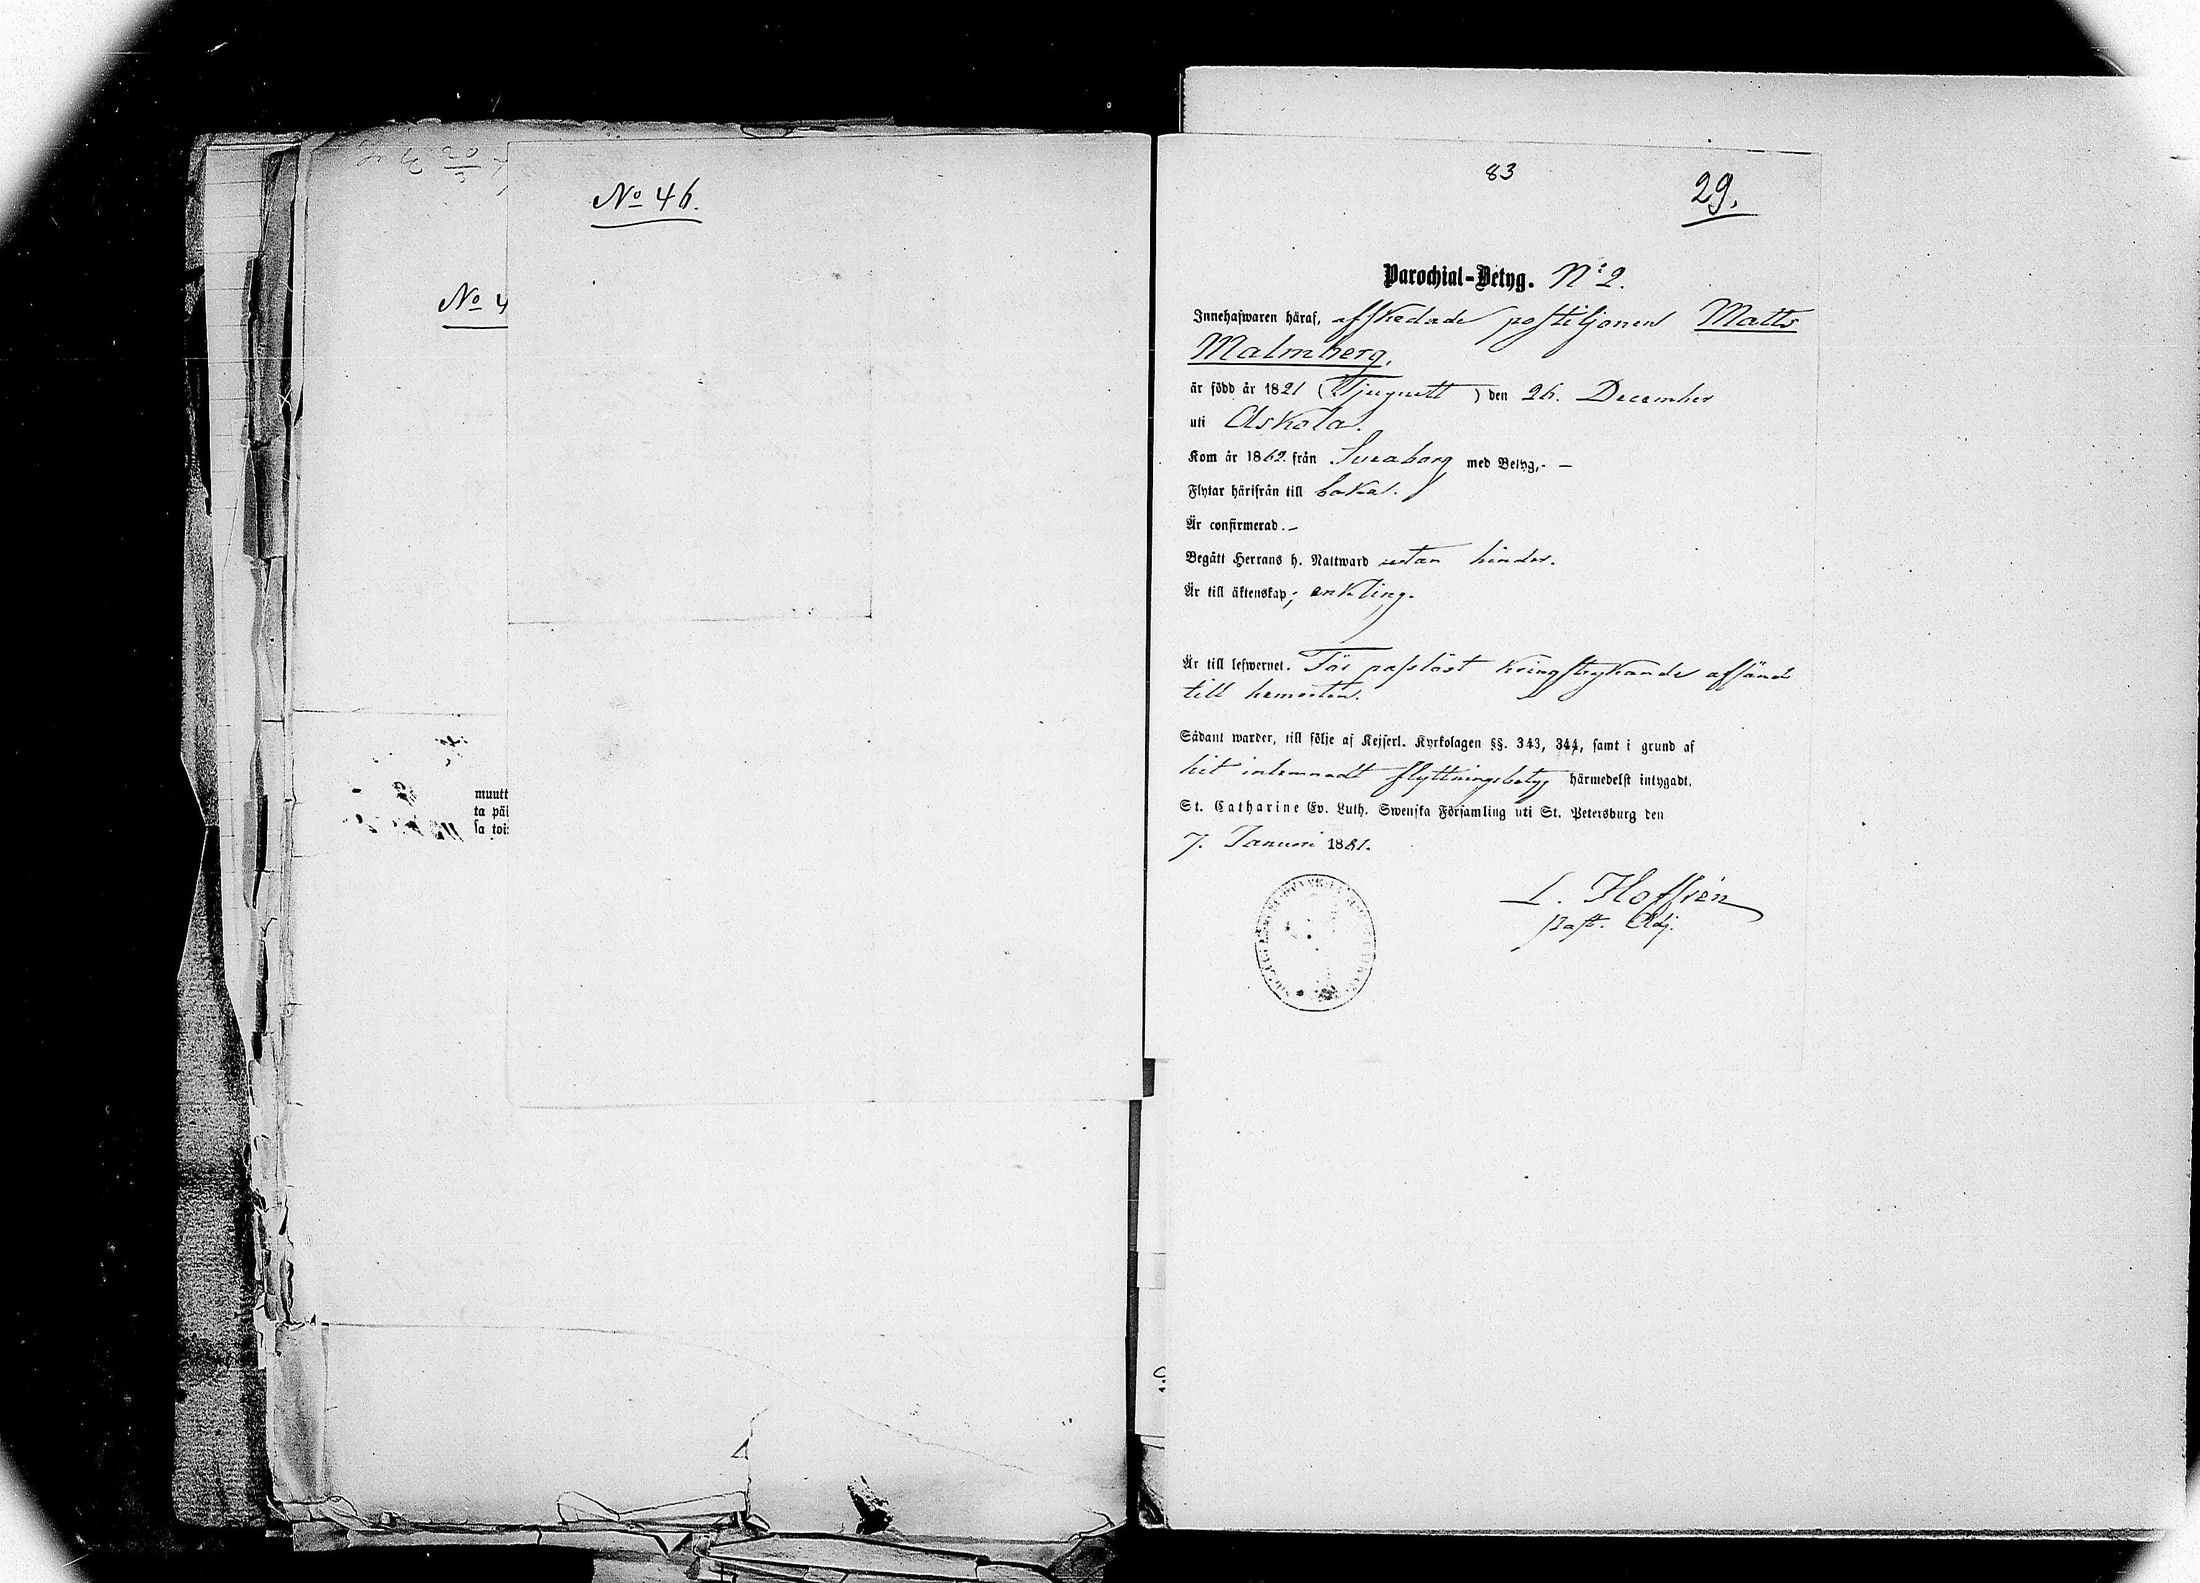 No 46.
No 4
muutt
ta päi
sa toi
83
29.
Parochial-Betyg. No 2.
Innehafwaren häraf, afskedade postiljonen Matts
Malmberg,
är född år 1821 (Tjuguett) den 26. December
uti Askola.
Kom år 1862. från Sveaborg med Betyg, -
Flytar härifrån till baka.
Är confirmerad. -
Begått Herrans h. Nattward utan hinder.
Är till äktenskap; enkling.
Är till lefwernet. För passlöst kringstrykande afsänd
till hemorten.
Sådant warder, till följe af Kejserl. Kyrkolagen §§. 343, 344, samt i grund af
hit inlemnadt flyttningsbetyg härmedelst intygadt.
St. Catharine Ev. Luth. Swenska Församling uti St. Petersburg den
7. Januari 1881.
L. Hoffrén
Past. Adj.